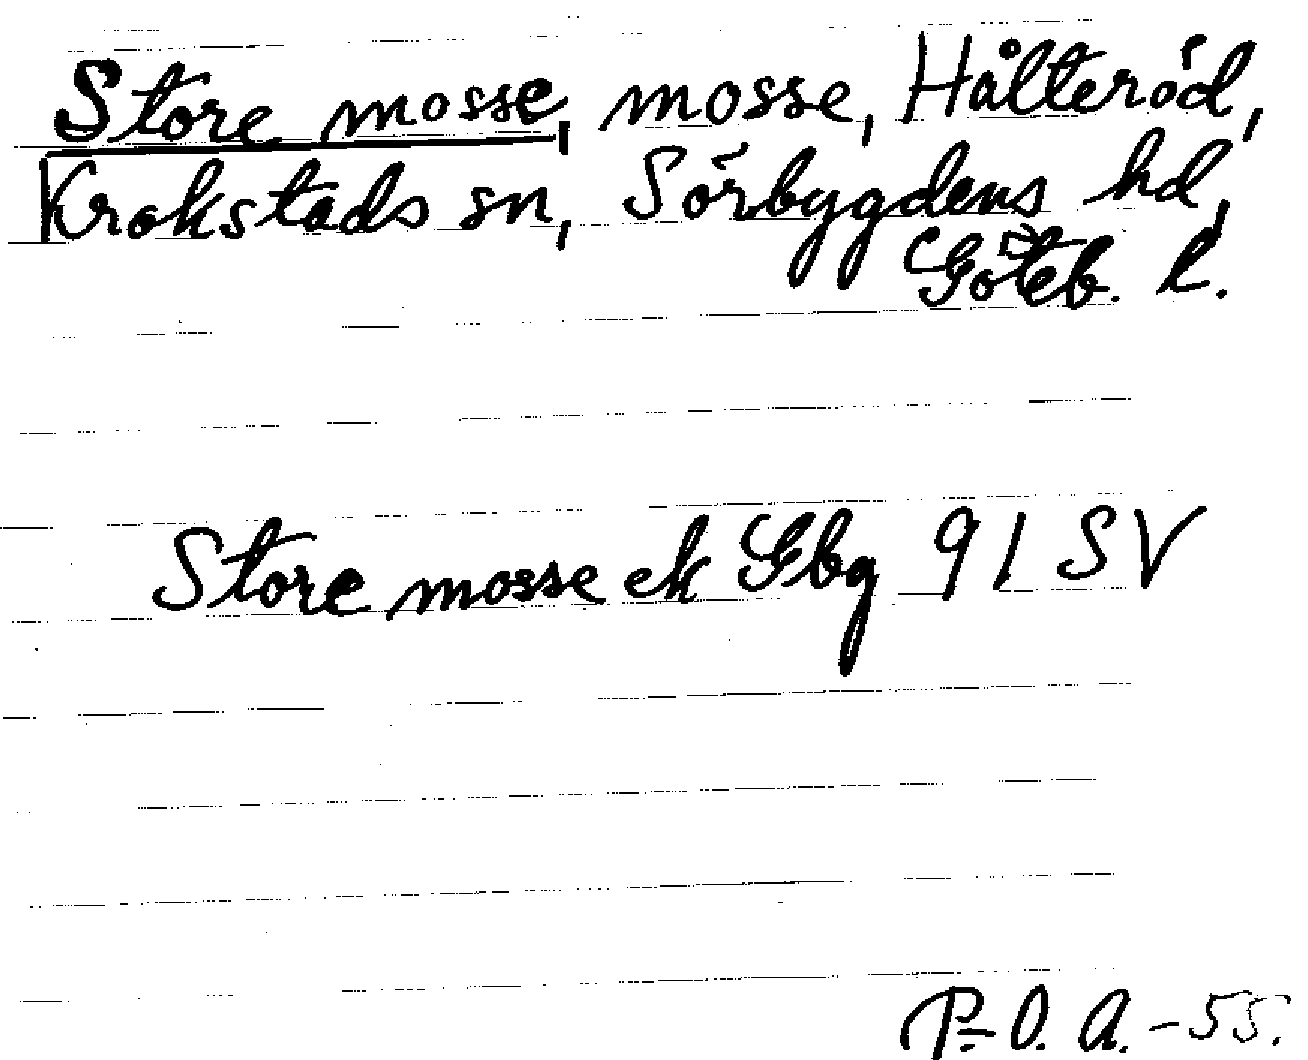 Store mosse, mosse, Hålteröd,
Krokstads sn, Sörbygdens hd,
Göteb. l.
Store mosse ek Gbg 91 SV
P.-O. A. -55.